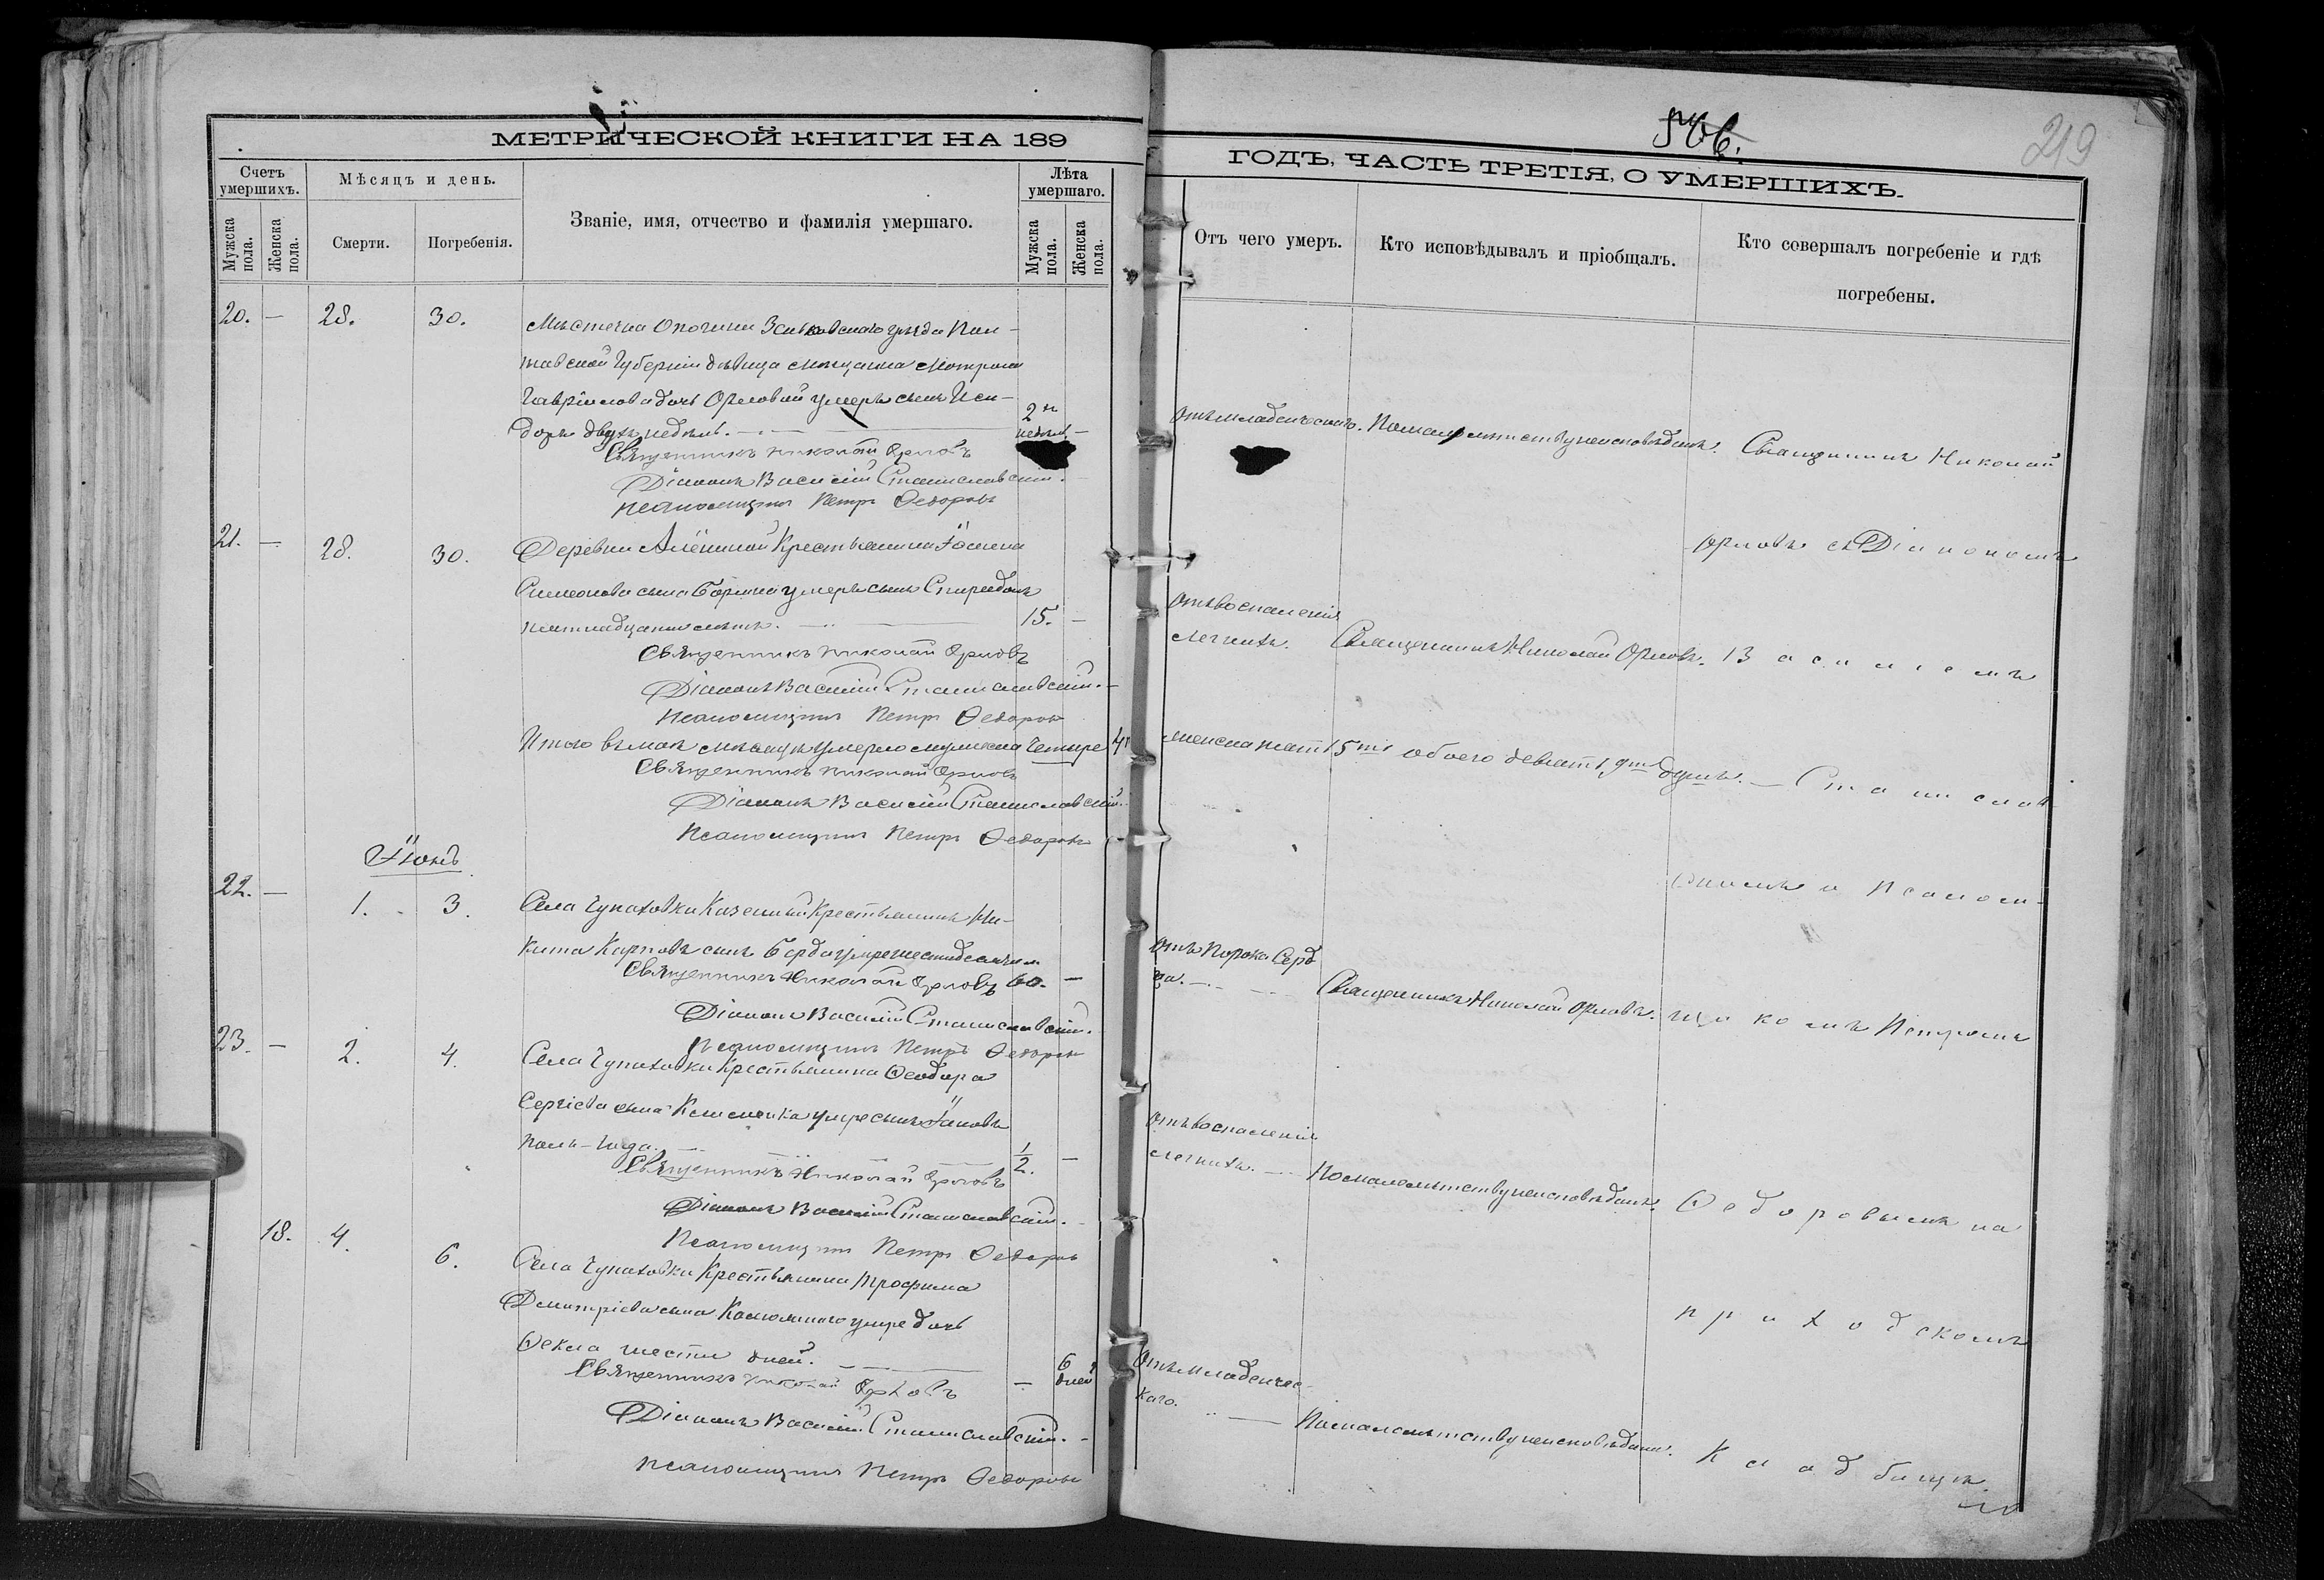 МЕТРИЧЕСКОЙ КНИГИ НА 189
Счетъ умершихъ.
Мѣсяцъ и день.
Званіе, имя, отчество и фамилія умершаго.
Лѣта умершаго.
Мужска пола.
Женска пола.
Смерти.
Погребенія.
Мужска пола.
Женска пола.
20. — 28. 30. Мѣстечка Опошни Зеньковскаго уѣзда Пол-
тавской Губерніи дѣвица мѣщанка Мотрона
Гавріилова дочь Орловой умеръ сынъ Иси-
доръ двухъ недѣль. — 2хъ недѣль. —
Священникъ Николай Орловъ
Діаконъ Василій Станиславскій.
Псаломщикъ Петръ Федоровъ
21. — 28. 30. Деревни Алёниной Крестьянина
Симеонова сына умеръ сынъ Спиридонъ
пятнадцати лѣтъ. — 15. —
Священникъ Николай Орловъ
Діаконъ Василій Станиславскій.
Псаломщикъ Петръ Федоровъ
Итого въ маѣ мѣсяцѣ умерло мужеска четыре 4
Священникъ Николай Орловъ
Діаконъ Василій Станиславскій.
Псаломщикъ Петръ Федоровъ
Іюнь
22. — 1. 3. Села Чупаховки Казенный Крестьянинъ Ни-
кита Карповъ сынъ умре шестидесяти
Священникъ Николай Орловъ 60. —
Діаконъ Василій Станиславскій.
Псаломщикъ Петръ Федоровъ
23. — 2. 4. Села Чупаховки Крестьянина Ѳеодора
Сергіева сына умре сынъ Іаковъ
полъ-года. — 1/2. —
Священникъ Николай Орловъ
Діаконъ Василій Станиславскій.
Псаломщикъ Петръ Федоровъ
18. 4. 6. Села Чупаховки Крестьянина Трофима
Димитріева сына умре дочь
Ѳекла шести дней. — — 6 дней
Священникъ Николай Орловъ
Діаконъ Василій Станиславскій.
Псаломщикъ Петръ Федоровъ
219
ГОДЪ, ЧАСТЬ ТРЕТІЯ, О УМЕРШИХЪ.
Отъ чего умеръ.
Кто исповѣдывалъ и пріобщалъ.
Кто совершалъ погребеніе и гдѣ
погребены.
Отъ младенческаго. По малолѣтству неисповѣданъ. Священникъ Николай
Орловъ съ Діакономъ
Отъ воспаленія
легкихъ. Священникъ Николай Орловъ. Василіемъ
женска пять 5ть обоего девять 9ть душъ. — Станислав-
скимъ и Псалом-
Отъ Порока Серд-
ца. — Священникъ Николай Орловъ. щикомъ Петромъ
Отъ воспаленія
легкихъ. — По малолѣтству неисповѣданъ. Ѳедоровымъ на
приходскомъ
Отъ младенчес-
каго. — По малолѣтству неисповѣдана. Кладбищѣ.